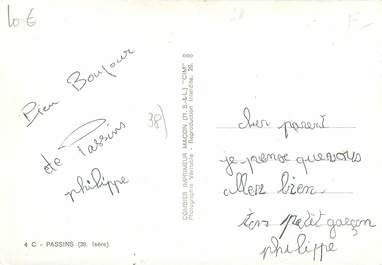 10 €
F-
Bien Bonjour
de Passins
philippe
38)
COMBIER IMPRIMEUR MACON (71. S.-&-L.) "CIM"
Photographie Véritable - Reproduction Interdite.
cher parent
je pense que vous
allez bien.
ton petit garçon
philippe
4 C - PASSINS (38. Isère)